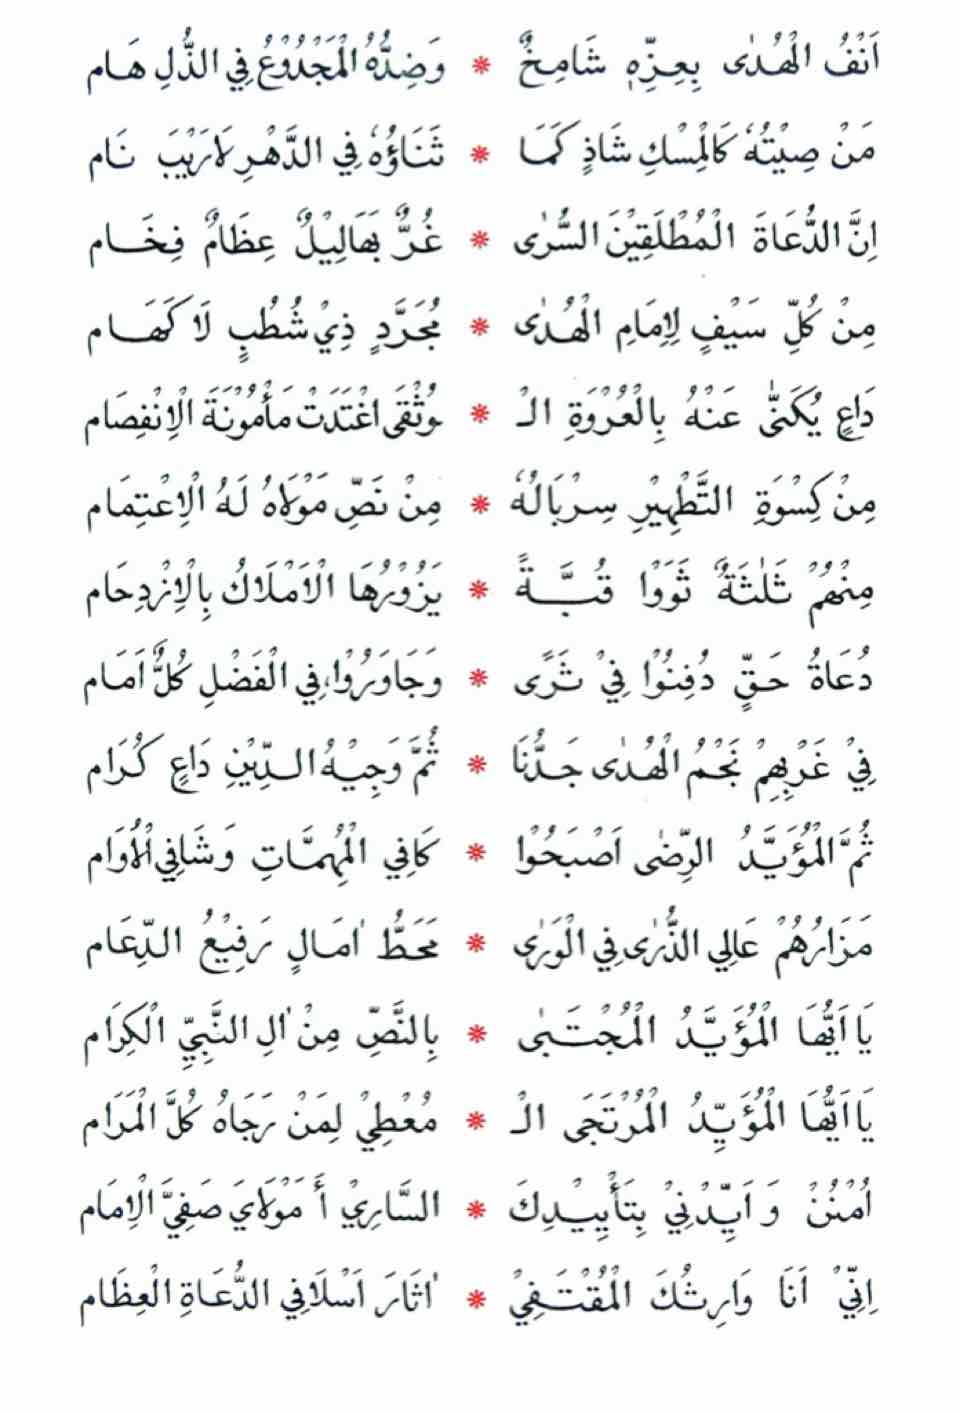 اَنْفُ الْهُدٰى بِعِزِّهٖ شَامِخٌ * وَضِدُّهُ الْمَجْدُوْعُ فِي الذُّلِ هَام
مَنْ صِيْتُهٗ كَالْمِسْكِ شَاذٍ كَمَا * ثَنَاؤُهٗ فِي الدَّهْرِ لَارَيْبَ نَام
اِنَّ الدُّعَاةَ الْمُطْلَقِيْنَ السُّرٰى * غُرٌّ بَهَالِيْلٌ عِظَامٌ فِخَام
مِنْ كُلِّ سَيْفٍ لِاِمَامِ الْهُدٰى * مُجَرَّدٍ ذِيْ شُطُبٍ لَا كَهَام
دَاعٍ يُكَنّٰى عَنْهُ بِالْعُرْوَةِ الْـ * ـوُثْقٰى اغْتَدَتْ مَأْمُوْنَةَ الْاِنْفِصَام
مِنْ كِسْوَةِ التَّطْهِيْرِ سِرْبَالُهٗ * مِنْ نَصِّ مَوْلَاهُ لَهُ الْاِعْتِمَام
مِنْهُمْ ثَلٰثَةٌ ثَوَوْا قُبَّةً * يَزُوْرُهَا الْاَمْلَاكُ بِالْاِزْدِحَام
دُعَاةُ حَقٍّ دُفِنُوْا فِيْ ثَرًى * وَجَاوَرُوْا، فِي الْفَضْلِ كُلٌّ اَمَام
فِيْ غَرْبِهِمْ نَجْمُ الْهُدٰى جَدُّنَا * ثُمَّ وَجِيْهُ الدِّيْنِ دَاعٍ كُرَام
ثُمَّ الْمُؤَيَّدُ الرِّضٰى اَصْبَحُوْا * كَافِي الْمُهِمَّاتِ وَشَافِي الْاُوَام
مَزَارُهُمْ عَالِي الذُّرٰى فِي الْوَرٰى * مَحَطُّ اٰمَالٍ رَفِيْعُ الدِّعَام
يَا اَيُّهَا الْمُؤَيَّدُ الْمُجْتَبٰى * بِالنَّصِّ مِنْ اٰلِ النَّبِيِّ الْكِرَام
يَا اَيُّهَا الْمُؤَيِّدُ الْمُرْتَجَى الْـ * مُعْطِيْ لِمَنْ رَجَاهُ كُلَّ الْمَرَام
اُمْنُنْ وَ اَيِّدْنِيْ بِتَأْيِيْدِكَ * السَّارِيْ أَ مَوْلَايَ صَفِيَّ الْاِمَام
اِنِّيْ اَنَا وَارِثُكَ الْمُقْتَفِيْ * اٰثَارَ اَسْلَافِي الدُّعَاةِ الْعِظَام